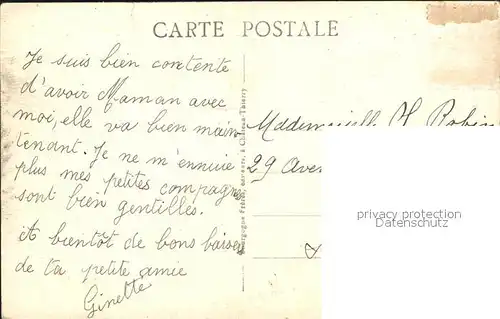 CARTE POSTALE
Je suis bien contente
d'avoir Maman avec
moi, elle va bien main-
tenant. Je ne m'ennuie
plus mes petites compagnes
sont bien gentilles.
A bientôt de bons baisers
de ta petite amie
Ginette
Bourgogne Frères, éditeurs, à Château-Thierry
Mademoiselle H Robin
29 Aven
privacy protection
Datenschutz